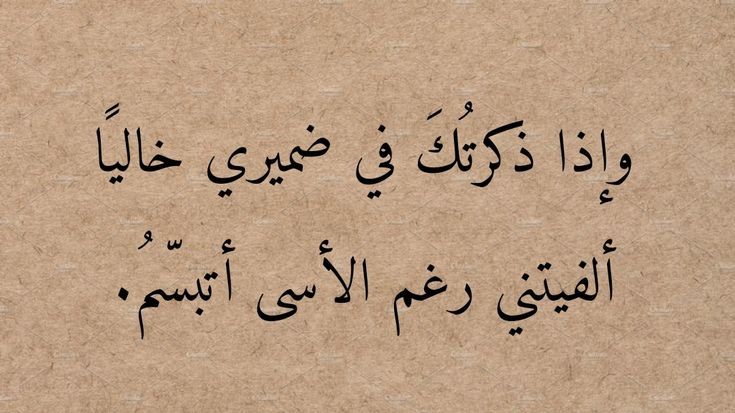 وإذا ذكرتُكَ في ضميري خاليًا
ألفيتني رغم الأسى أتبسّمُ.